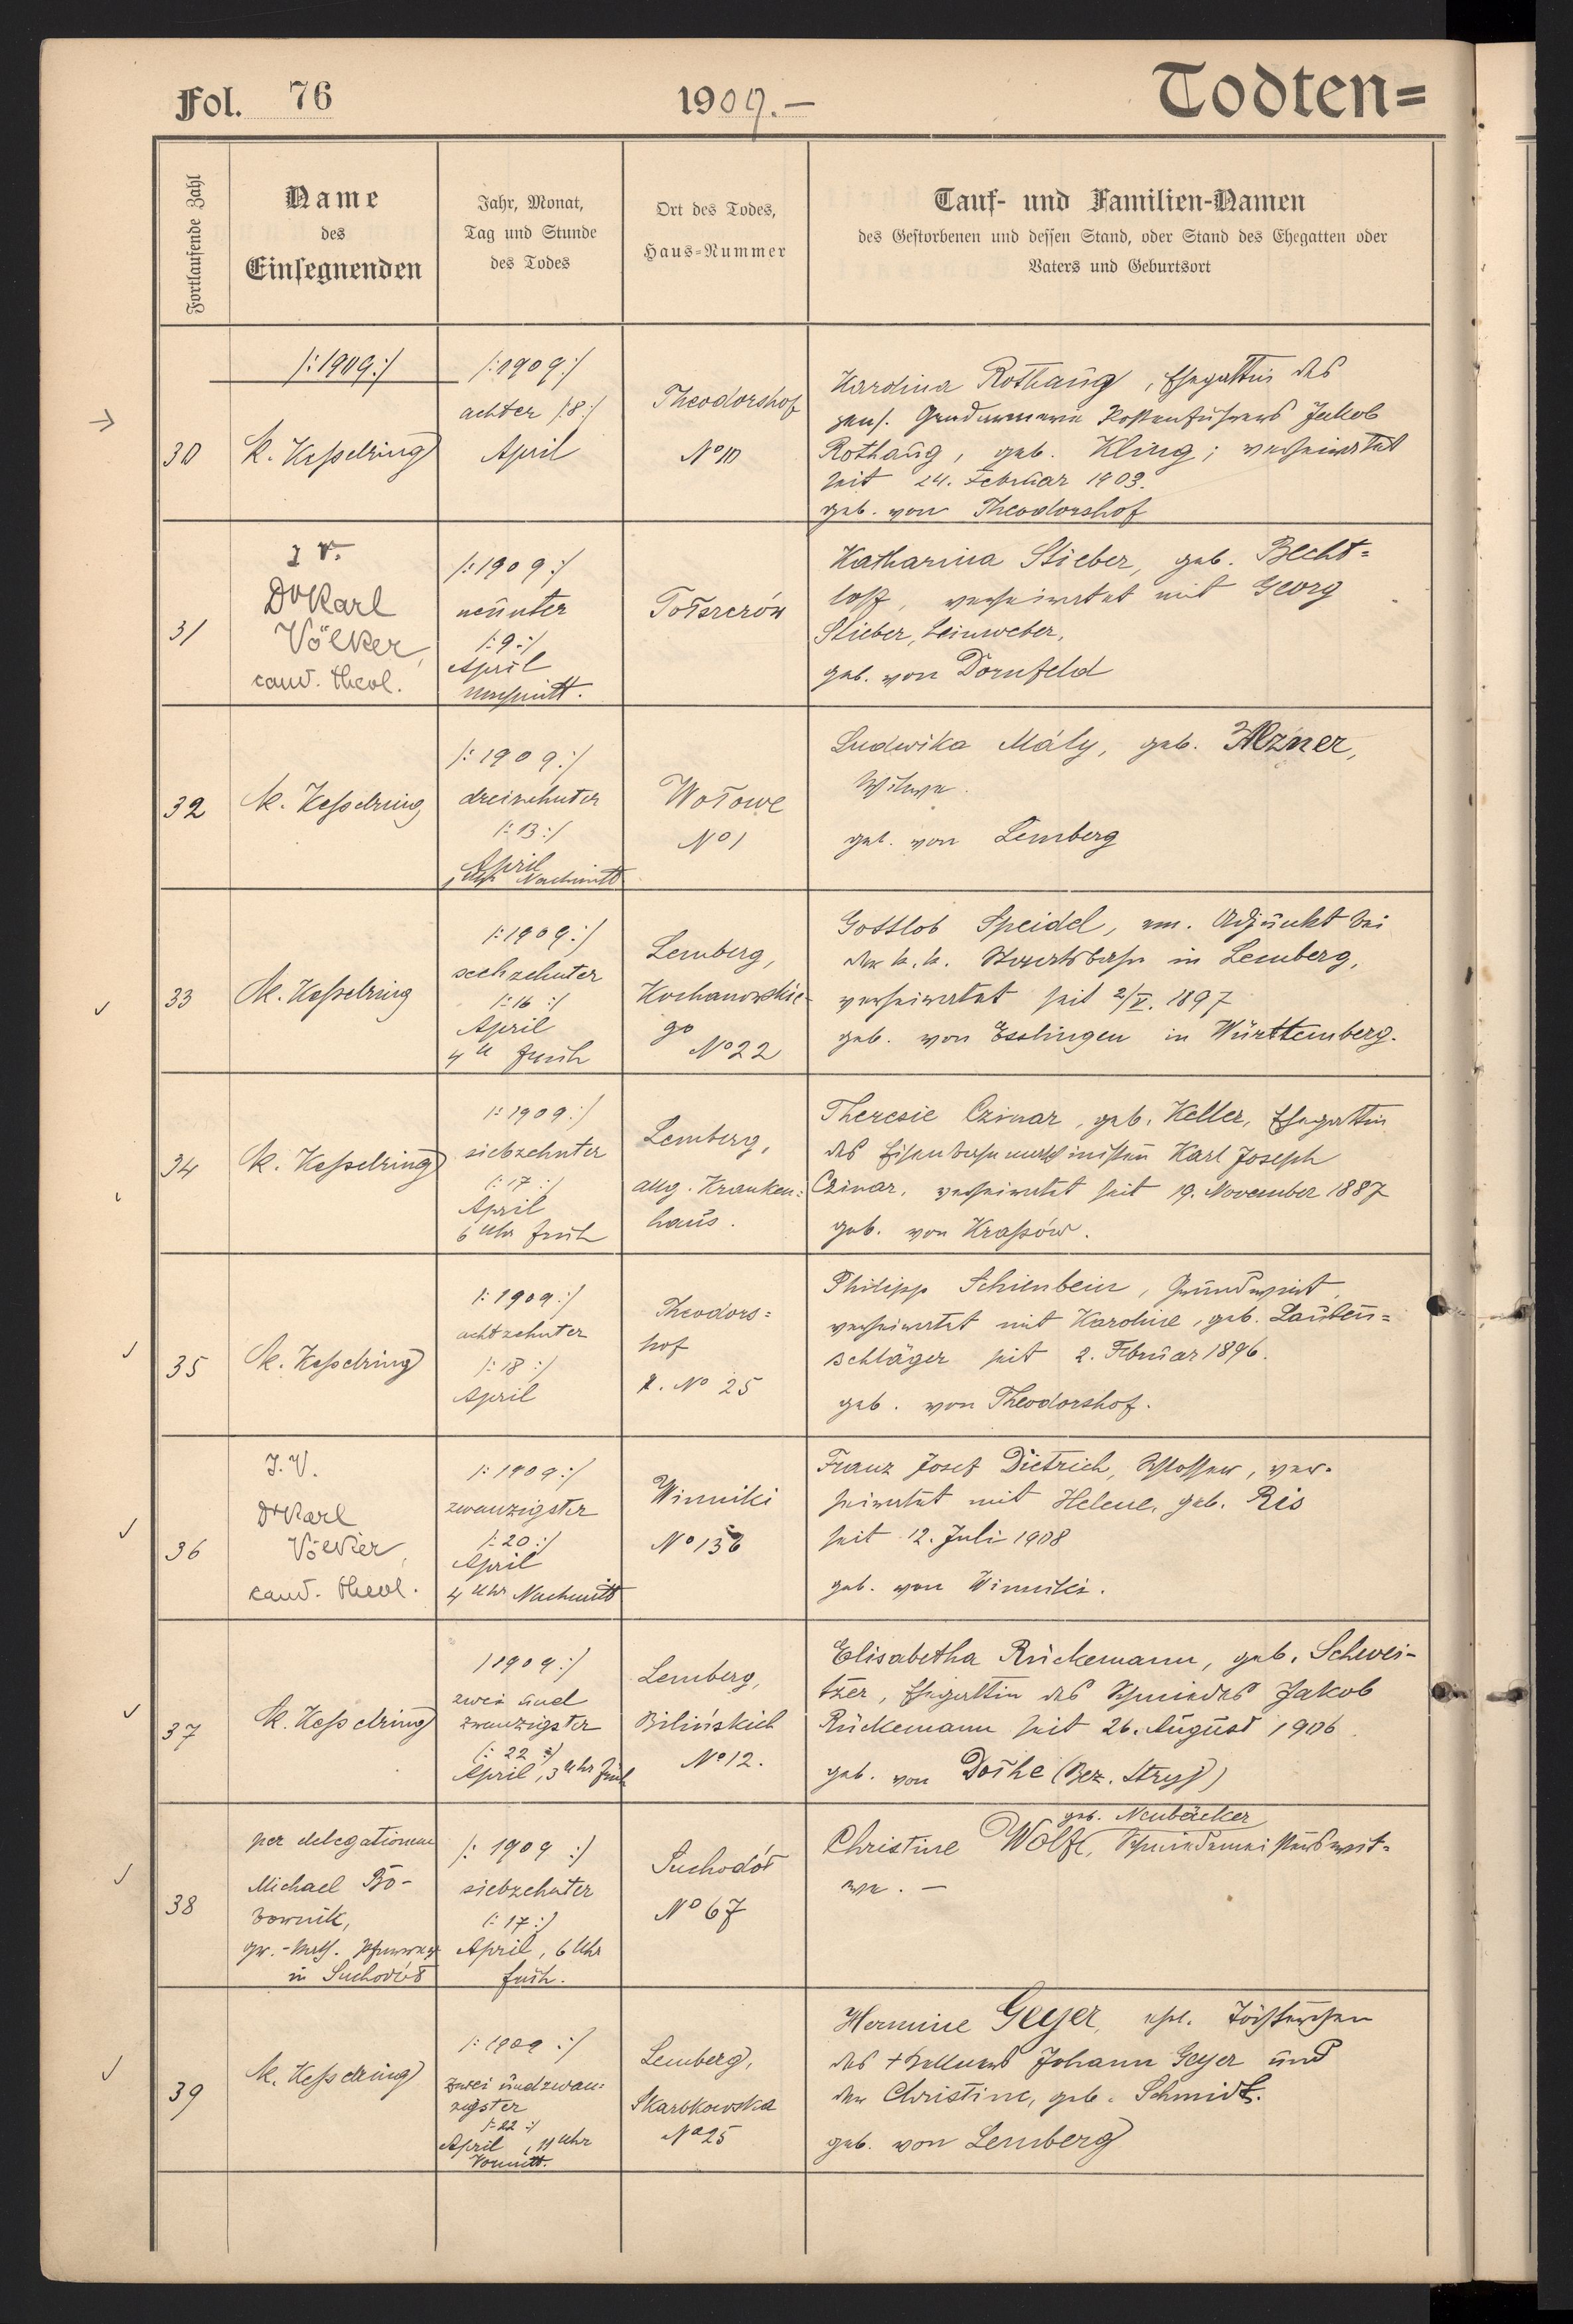 Fol. 76
1909.—
Todten=
Fortlaufende Zahl
Name
des
Einsegnenden
Jahr, Monat,
Tag und Stunde
des Todes
Ort des Todes,
Haus-Nummer
Tauf- und Familien-Namen
des Gestorbenen und dessen Stand, oder Stand des Ehegatten oder
Vaters und Geburtsort
/:1909:/
30
k. Kesselring
/:1909:/
achter /:8:/
April
Theodorshof
No 10
Karolina Rothaug, Ehegattin des
pens. Gendarmerie Postenführers Jakob
Rothaug, geb. Kling; verheiratet
seit 24. Februar 1903.
geb. von Theodorshof
31
I V.
Dr Karl
Völker,
cand. theol.
/:1909:/
neunter
/:9:/
April
Tołszczów
Katharina Stieber, geb. Becht=
loff, verheiratet mit Georg
Stieber, Leinweber,
geb. von Dornfeld
32
k. Kesselring
/:1909:/
dreizehnter
/:13:/
April
1 Uhr Nachmitt
Wołowe
No 1
Ludwika Mály, geb. Alzner,
Witwe.
geb. von Lemberg
33
k. Kesselring
/:1909:/
sechzehnter
/:16:/
April
4 U früh
Lemberg,
Kochanowskie-
go
No 22
Gottlob Speidel, em. Adjunkt bei
der k. k. Staatsbahn in Lemberg,
verheiratet seit 2/V. 1897
geb. von Esslingen in Württemberg.
34
k. Kesselring
/:1909:/
siebzehnter
/:17:/
April
6 Uhr früh
Lemberg,
allg. Kranken=
haus.
Theresie Czinar, geb. Keller, Ehegattin
des Eisenbahnmaschinisten Karl Joseph
Czinar, verheiratet seit 19. November 1887
geb. von Krassów.
35
k. Kesselring
/:1909:/
achtzehnter
/:18:/
April
Theodors=
hof
No 25
Philipp Schienbein, Grundwirt,
verheiratet mit Karoline, geb. Lauten=
schläger seit 2. Februar 1896.
geb. von Theodorshof.
36
I. V.
Dr Karl
Völker,
cand. theol.
/:1909:/
zwanzigster
/:20:/
April
4 Uhr Nachmitt
Winniki
No 136
Franz Josef Dietrich, Schlosser, ver-
heiratet mit Helene, geb. Ris
seit 12. Juli 1908
geb. von Winniki.
37
k. Kesselring
/1909:/
zwei und
zwanzigster
/:22:/
April, 3 Uhr früh
Lemberg,
Bilińskich
No 12.
Elisabetha Rückemann, geb. Schwei-
tzer, Ehegattin des Schmiedes Jakob
Rückemann seit 26. August 1906.
geb. von Dołhe (Bez. Stryj)
38
per delegationem
Michael Bo-
townik,
gr.-kath. Pfarrer
in Suchodół
/:1909:/
siebzehnter
/:17:/
April, 6 Uhr
früh.
Suchodół
No 67
geb. Neubäcker
Christine Wolf, Schmiedemeisterswit=
we.—
39
k. Kesselring
/:1909:/
zwei undzwan=
zigster
/:22:/
April, 11 Uhr
Vormitt.
Lemberg,
Skarbkowska
No 25
Hermine Geyer, ehel. Töchterchen
des + Kellners Johann Geyer und
der Christine, geb. Schmidt.
geb. von Lemberg